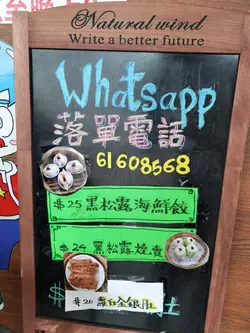 Natural wind
Write a better future
Whatsapp
落單電話
61608568
$25黑松露海鮮餃
$24黑松露燒賣
$20 蘿白金銀肚